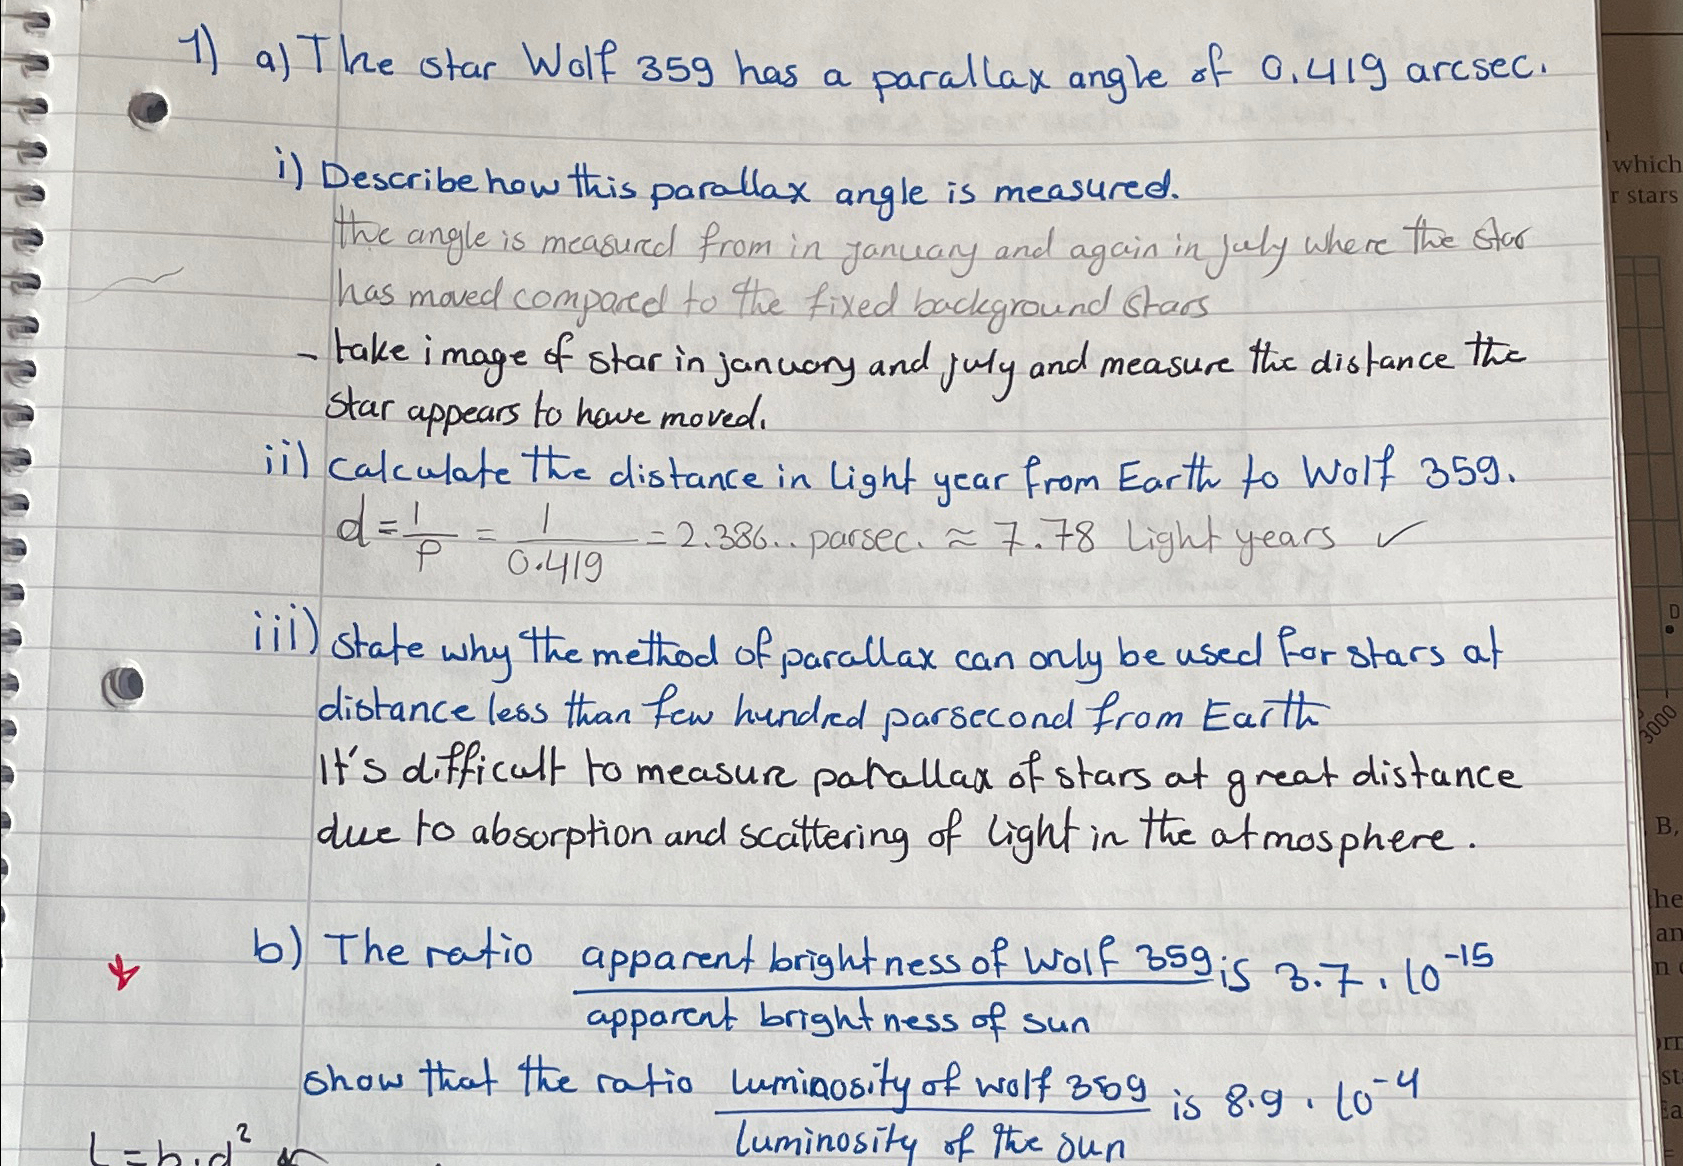 1) a) The star Wolf 359 has a parallax angle of 0.419 arcsec.
i) Describe how this parallax angle is measured.
the angle is measured from in january and again in july where the star
has moved compared to the fixed background stars
- take image of star in january and july and measure the distance the
star appears to have moved.
ii) calculate the distance in light year from Earth to Wolf 359.
d = 1/p = 1/0.419 = 2.386.. parsec. ≈ 7.78 light years ✓
iii) state why the method of parallax can only be used for stars at
distance less than few hundred parsecond from Earth
It's difficult to measure parallax of stars at great distance
due to absorption and scattering of light in the atmosphere.
b) The ratio apparent brightness of Wolf 359 is 3.7 · 10^-15
apparent brightness of sun
show that the ratio luminosity of wolf 359 is 8.9 · 10^-4
luminosity of the sun
L = b · d²
which
r stars
D
3000
B,
he
an
n
st